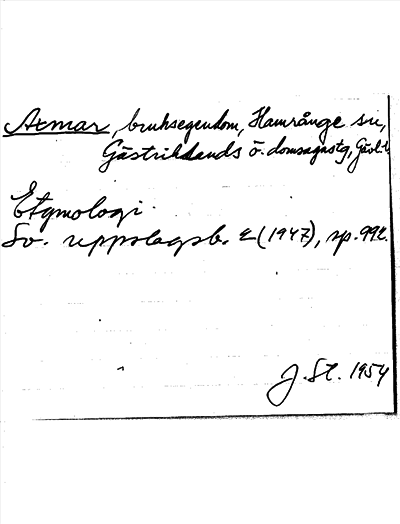 Axmar, bruksegendom, Hamrånge sn,
Gästriklands ö. domsagastg, Gävl. l.
Etymologi.
Sv. uppslagsb. 2 (1947), sp. 992.
J. St. 1954